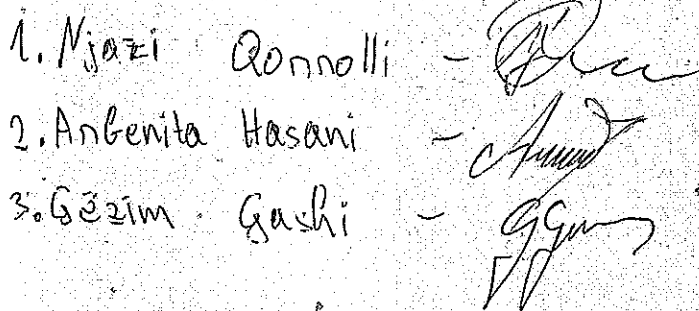 1. Njazi Qonnolli -
2. Arbenita Hasani -
3. Gëzim Gashi -